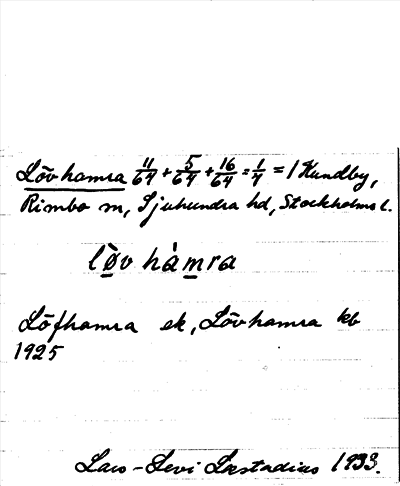 Lövhamra 11/64 + 5/64 + 16/64 = 1/4 = / Kundby,
Rimbo sn, Sjuhundra hd, Stockholms l.
lø̀v hàmra
Löfhamra ek, Lövhamra kb
1925
Lars-Levi Læstadius 1933.